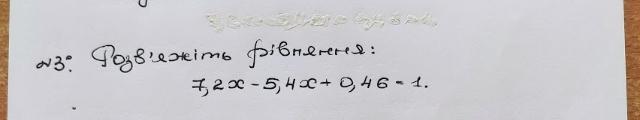 №3: Розв'яжіть рівняння:
7,2x - 5,4x + 0,46 = 1.